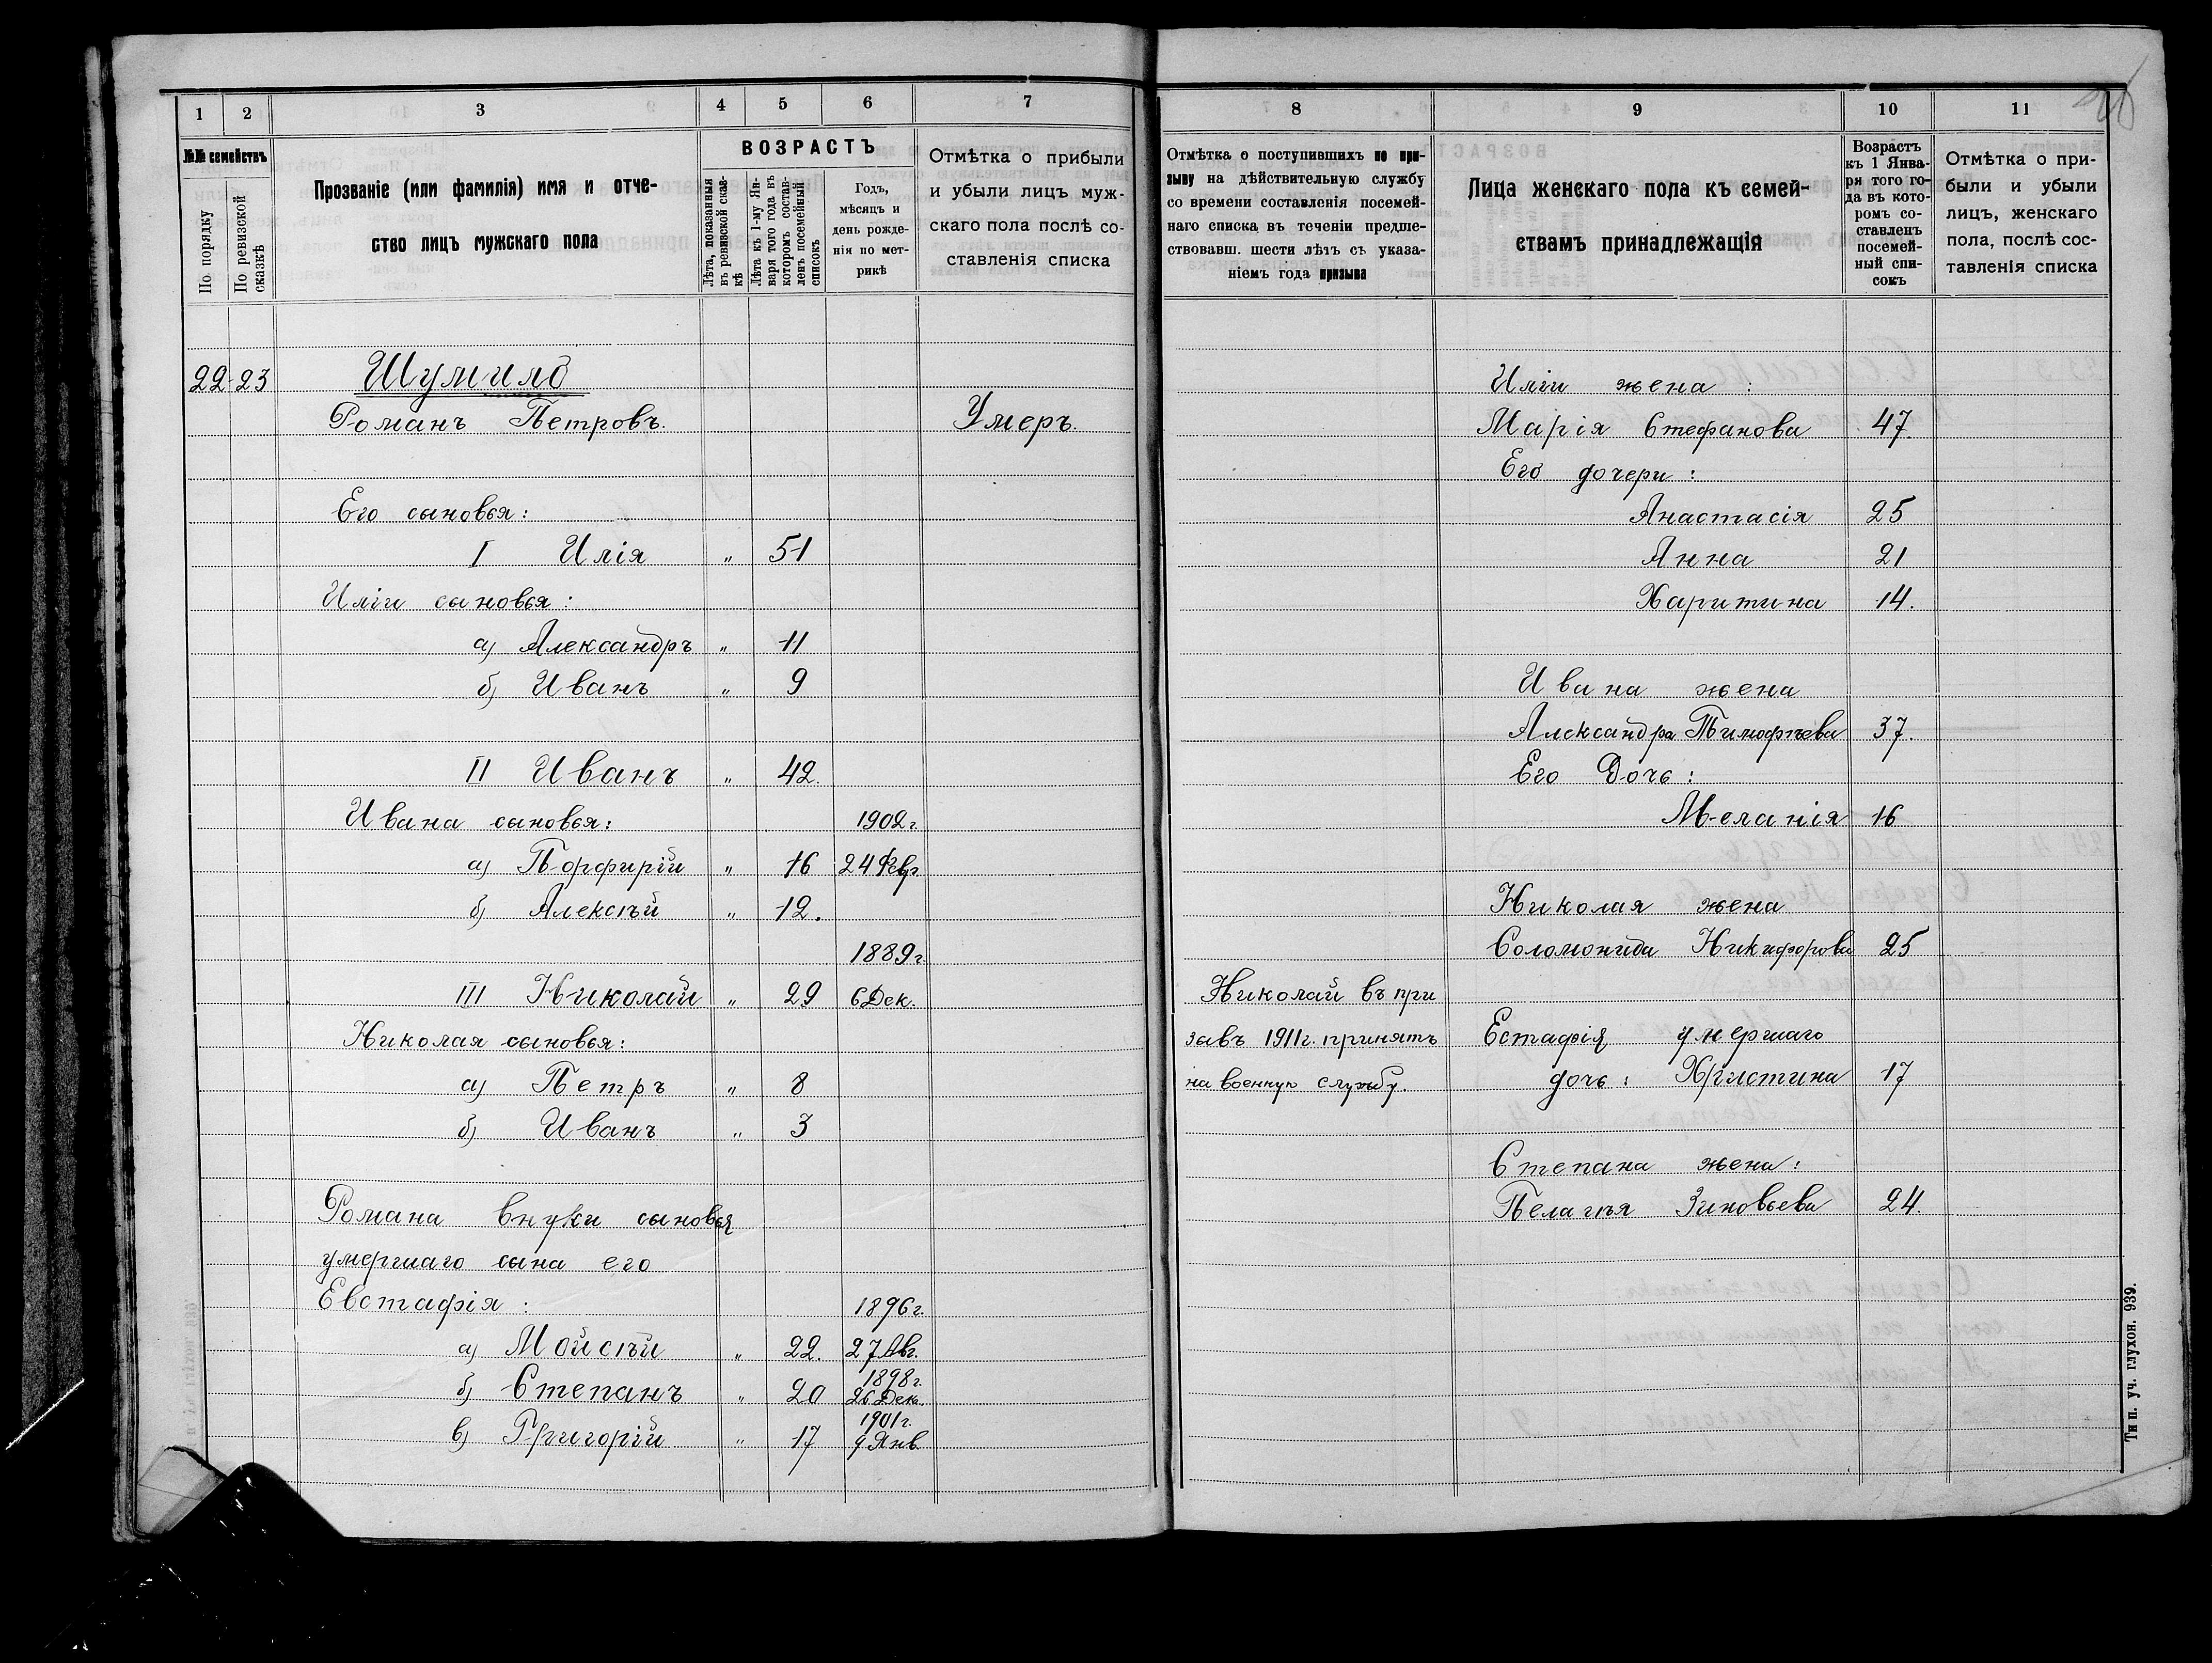 1 2 3 4 5 6 7
№№ семействъ
По порядку
По ревизской сказкѣ
Прозваніе (или фамилія) имя и отче-
ство лицъ мужскаго пола
ВОЗРАСТЪ
Лѣта, показанныя въ ревизской сказ-кѣ
Лѣта къ 1-му Ян-варя того года въ которомъ состав-ленъ посемейный списокъ
Годъ,
мѣсяцъ и
день рожде-
нія по мет-
рикѣ
Отмѣтка о прибыли
и убыли лицъ муж-
скаго пола послѣ со-
ставленія списка
22 23 Шумило
Романъ Петровъ. Умеръ.
Его сыновья:
I Илія " 51
Иліи сыновья:
а) Александръ " 11
б) Иванъ " 9
II Иванъ " 42.
Ивана сыновья: 1902 г.
а) Порфирій " 16 24 Февр.
б) Алексѣй " 12.
1889 г.
III Николай " 29 6 Дек.
Николая сыновья:
а) Петръ " 8
б) Иванъ " 3
Романа внуки сыновья
умершаго сына его
Евстафія: 1896 г.
а) Мойсѣй " 22. 27 Авг.
1898 г.
б) Степанъ " 20 26 Дек.
1901 г.
в) Григорій " 17 9 Янв.
8 9 10 11
Отмѣтка о поступившихъ по при-
зыву на дѣйствительную службу
со времени составленія посемей-
наго списка въ теченіи предше-
ствовавш. шести лѣтъ съ указа-
ніемъ года призыва
Лица женскаго пола къ семей-
ствамъ принадлежащія
Возрастъ
къ 1 Янва-
ря того го-
да въ кото-
ромъ со-
ставленъ
посемей-
ный спи-
сокъ
Отмѣтка о при-
были и убыли
лицъ, женскаго
пола, послѣ сос-
тавленія списка
Иліи жена:
Марія Стефанова 47.
Его дочери:
Анастасія 25
Анна 21
Харитина 14.
Ивана жена
Александра Тимофѣева 37.
Его Дочь:
Меланія 16
Николая жена
Соломонида Никифорова 25
Николай въ при
зывъ 1911 г. принятъ Естафія умершаго
на военную службу. дочь: Христина 17
Степана жена:
Пелагѣя Зиновьева 24.
Тип. уч. глухон. 939.